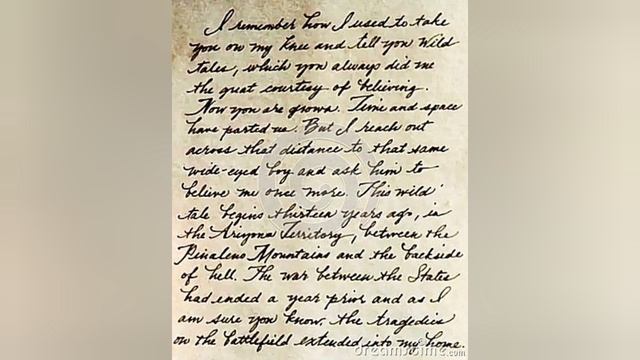 I remember how I used to take
you on my knee and tell you wild
tales, which you always did me
the great courtesy of believing.
Now you are grown. Time and space
have parted us. But I reach out
across that distance to that same
wide-eyed boy and ask him to
believe me once more. This wild
tale begins thirteen years ago, in
the Arizona Territory, between the
Pinaleno Mountains and the backside
of hell. The war between the States
had ended a year prior and as I
am sure you know, the tragedies
on the battlefield extended into my home.
dreamstime.com